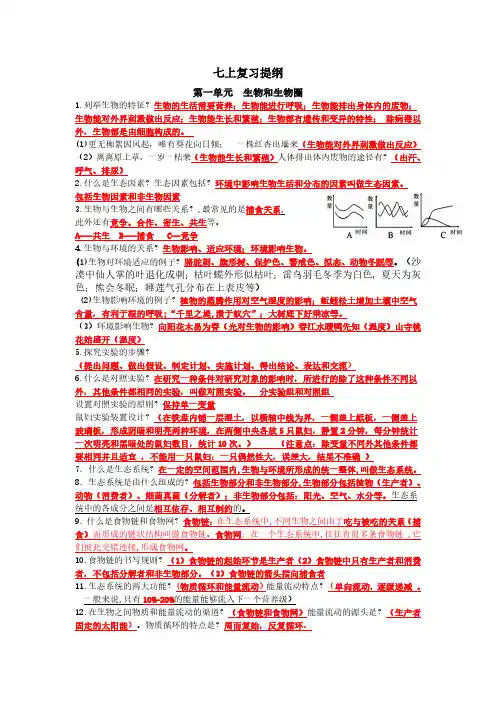 七上复习提纲
第一单元 生物和生物圈
1.列举生物的特征？生物的生活需要营养；生物能进行呼吸；生物能排出身体内的废物；
生物能对外界刺激做出反应；生物能生长和繁殖；生物都有遗传和变异的特性； 除病毒以
外，生物都是由细胞构成的。
(1)更无柳絮因风起，唯有葵花向日倾； 一株红杏出墙来(生物能对外界刺激做出反应)
（2）离离原上草，一岁一枯荣(生物能生长和繁殖)人体排出体内废物的途径有？（出汗、
呼气、排尿）
2.什么是生态因素？生态因素包括？环境中影响生物生活和分布的因素叫做生态因素。
包括生物因素和非生物因素
3.生物与生物之间有哪些关系？,最常见的是捕食关系,
此外还有竞争、合作、寄生、共生等。
A——共生 B——捕食 C—竞争
数量 数量 数量
时间 时间 时间
A B C
4.生物与环境的关系？生物影响、适应环境；环境影响生物。
(1)生物对环境适应的例子？骆驼刺、旗形树、保护色、警戒色、拟态、动物冬眠等。（沙
漠中仙人掌的叶退化成刺；枯叶蝶外形似枯叶；雷鸟羽毛冬季为白色，夏天为灰
色；熊会冬眠；睡莲气孔分布在上表皮等）
(2)生物影响环境的例子？植物的蒸腾作用对空气湿度的影响；蚯蚓松土增加土壤中空气
含量，有利于根的呼吸；“千里之堤,溃于蚁穴”；大树底下好乘凉等。
（3）环境影响生物？向阳花木易为春（光对生物的影响）春江水暖鸭先知（温度）山寺桃
花始盛开（温度）
5.探究实验的步骤？
（提出问题、做出假设、制定计划、实施计划、得出结论、表达和交流）
6.什么是对照实验？在研究一种条件对研究对象的影响时，所进行的除了这种条件不同以
外，其他条件都相同的实验，叫做对照实验。 分实验组和对照组
设置对照实验的原则？保持单一变量
鼠妇实验装置设计？（在铁盘内铺一层湿土，以横轴中线为界，一侧盖上纸板，一侧盖上
玻璃板，形成阴暗和明亮两种环境，在两侧中央各放5只鼠妇，静置2分钟，每分钟统计
一次明亮和黑暗处的鼠妇数目，统计10次。） （注意点：除变量不同外其他条件都
要相同并且适宜，不能用一只鼠妇：一只偶然性大，误差大，结果不准确）
7．什么是生态系统？在一定的空间范围内,生物与环境所形成的统一整体,叫做生态系统。
8．生态系统是由什么组成的？包括生物部分和非生物部分,生物部分包括植物（生产者）、
动物（消费者）、细菌真菌（分解者）；非生物部分包括：阳光、空气、水分等。生态系
统中的各成分之间是相互依存、相互制约的。
9．什么是食物链和食物网？食物链：在生态系统中,不同生物之间由于吃与被吃的关系（捕
食）而形成的链状结构叫做食物链。食物网：在一个生态系统中,往往有很多条食物链,它
们彼此交错连接,形成食物网。
10.食物链的书写规则？（1）食物链的起始环节是生产者（2）食物链中只有生产者和消费
者，不包括分解者和非生物部分。（3）食物链的箭头指向捕食者
11.生态系统的两大功能？(物质循环和能量流动)能量流动特点？(单向流动，逐级递减 。
一般来说,只有10%-20%的能量能够流入下一个营养级)
12.在生物之间物质和能量流动的渠道？(食物链和食物网)能量流动的源头是？(生产者
固定的太阳能)。物质循环的特点是？周而复始，反复循环。